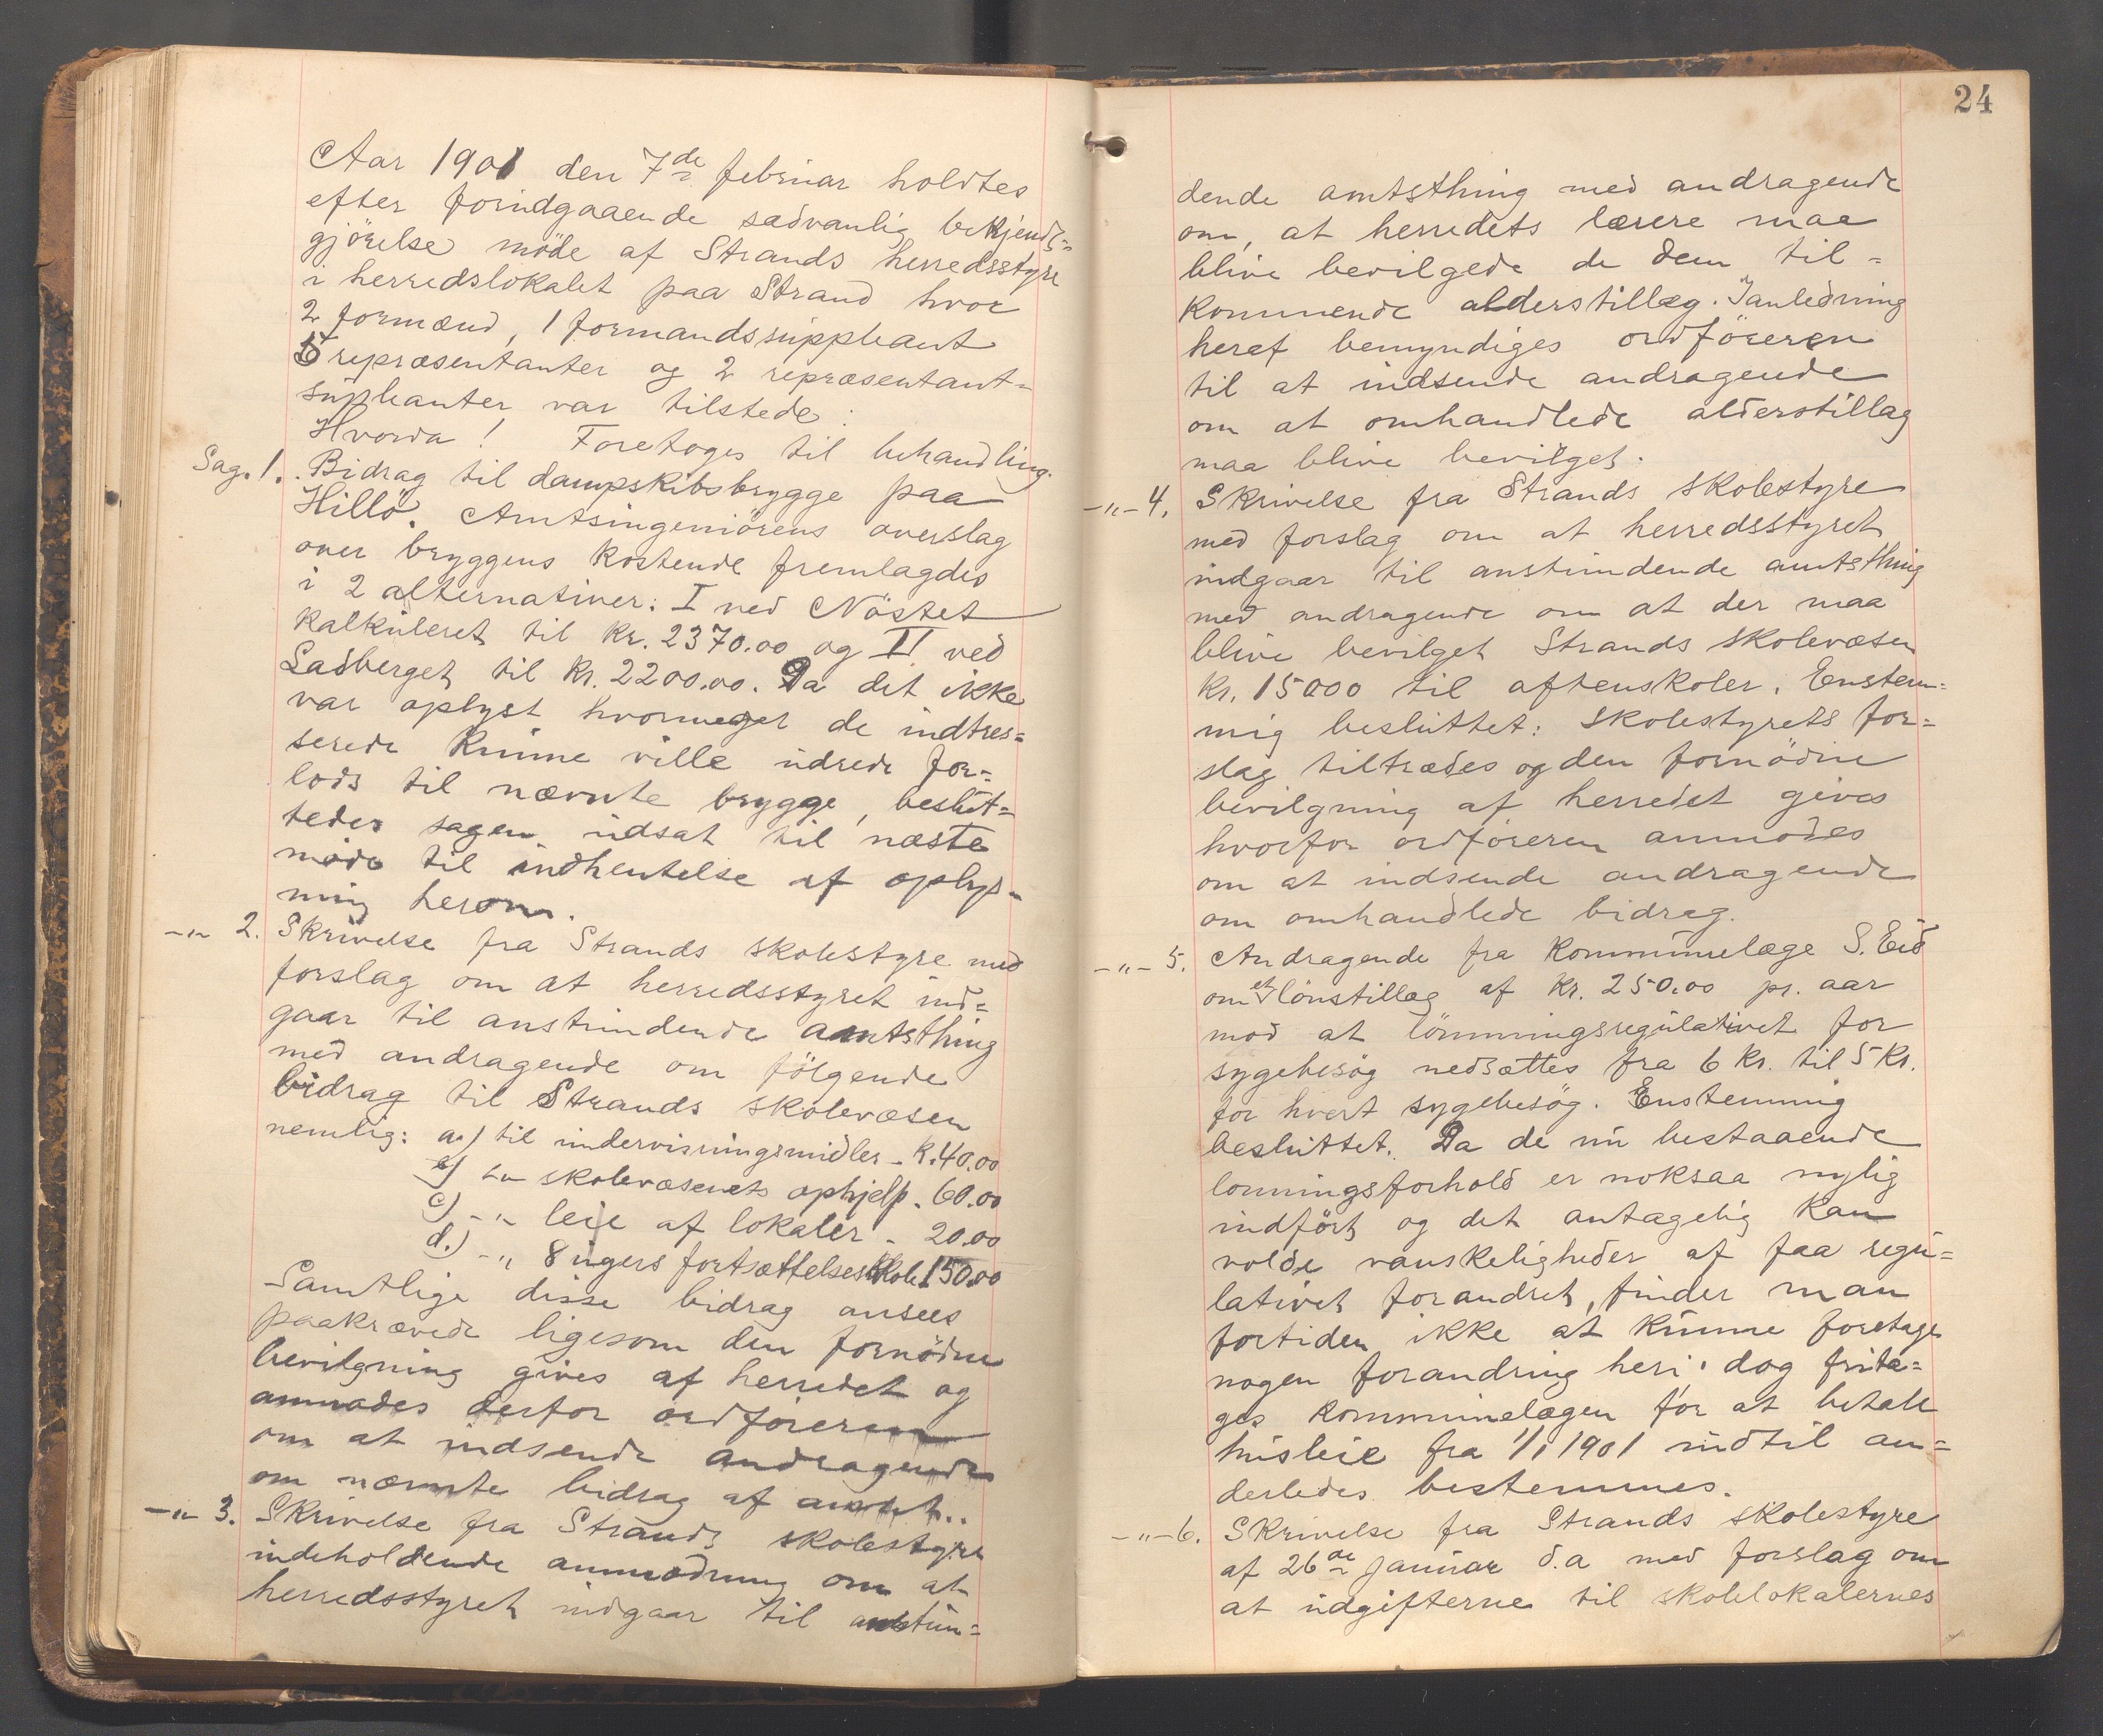 Aar 1901 den 7de februar holdtes
efter forudgaaende sædvanlig bekjendt=
gjörelse möde af Strands herredsstyre
i herredslokalet paa Strand hvor
2 formænd, 1 formandssuppleant
5 repræsentanter og 2 repræsentant=
supleanter var tilstede:
Hvorda! Foretoges til behandling.
Sag. 1. Bidrag til dampskibsbrygge paa
Hillö. Amtsingeniörens overslag
over bryggens kostende fremlagdes
i 2 alternativer: I ved Nöstet
kalkuleret til kr. 2370.00 og II ved
Ladberget til kr. 2200.00. Da det ikke
var oplyst hvormeget de indtres=
serede kunne ville udrede for=
lods til nævnte brygge, beslut=
tedes sagen udsat til næste
möde til indhentelse af oplys=
ning herom.
-"- 2. Skrivelse fra Strands skolestyre med
forslag om at herredsstyret ind=
gaar til anstundende amtsthing
med andragende om fölgende
bidrag til Strands skolevæsen
nemlig: a.) til undervisningsmidler - K. 40.00
b) -"- skolevæsenets ophjelp - 60.00
c) -"- leie af lokaler - 20.00
d.) -"- 8 ugers fortsættelsesskole 150.00
Samtlige disse bidrag ansees
paakrævede ligesom den fornödne
bevilgning gives af herredet og
anmodes derfor ordföreren
om at indsende andragende
om nævnte bidrag af amtet..
-"- 3. Skrivelse fra Strands skolestyre
indeholdende anmodning om at
herredsstyret indgaar til anstun=
24
dende amtsthing med andragende
om, at herredets lærere maa
blive bevilgede de dem til=
kommende alderstillæg. I anledning
heraf bemyndiges ordföreren
til at indsende andragende
om at omhandlede alderstillæg
maa blive bevilget.
-"- 4. Skrivelse fra Strands skolestyre
med forslag om at herredsstyret
indgaar til anstundende amtsthing
med andragende om at der maa
blive bevilget Strands skolevæsen
kr. 15000 til aftenskoler. Enstem=
mig besluttet: Skolestyrets for=
slag tiltrædes og den fornödne
bevilgning af herredet gives
hvorfor ordföreren anmodes
om at indsende andragende
om omhandlede bidrag.
-"- 5. Andragende fra kommunelæge S. Eid
om et lönstillæg af kr. 250.00 pr. aar
mod at lönningsregulativet for
sygebesög nedsættes fra 6 kr. til 5 kr.
for hvert sygebesög. Enstemmig
besluttet. Da de nu bestaaende
lonningsforhold er noksaa nylig
indfört og det antagelig kan
volde vanskeligheder af faa regu=
lativet forandret, finder man
fortiden ikke at kunne foretage
nogen forandring heri. dog frita=
ges kommunelægen for at betale
husleie fra 1/1 1901 indtil an=
derledes bestemmes.
-"- 6. Skrivelse fra Strands skolestyre
af 26de januar d.a med forslag om
at udgifterne til skolelokalernes